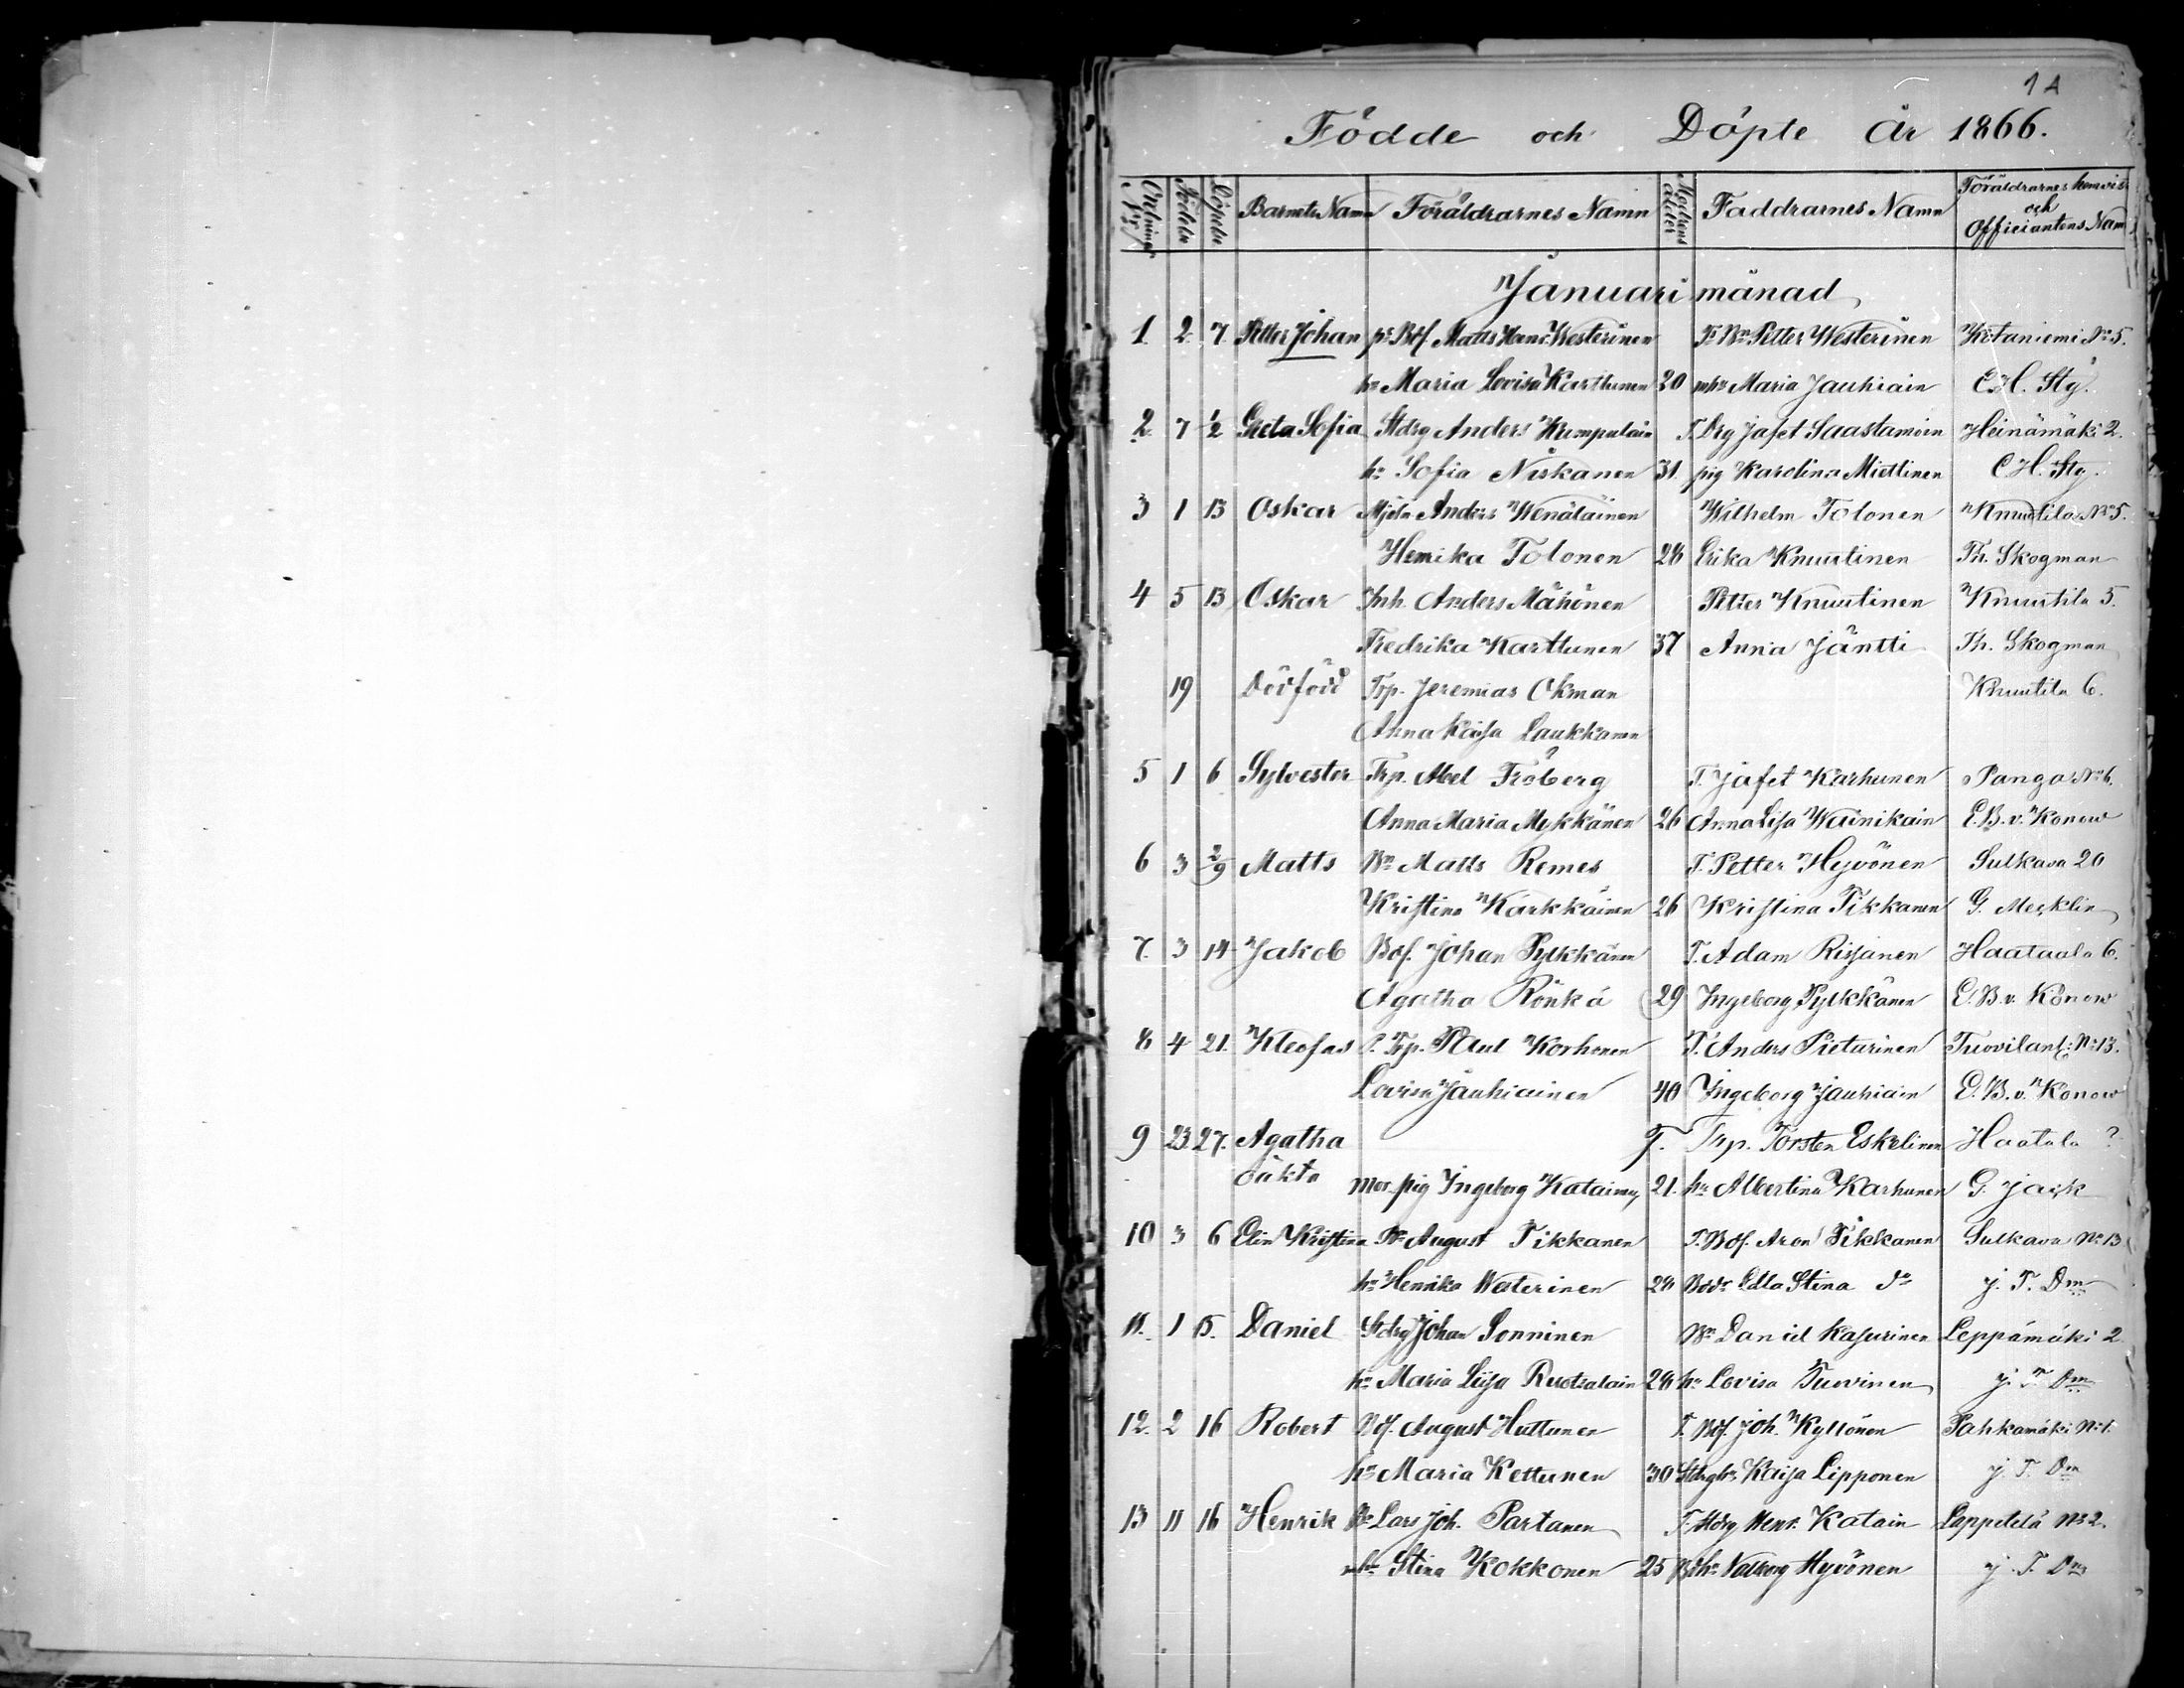 1A
Födde och Döpte År 1866.
Ordnings N:r Födelse Döpelse Barnets Namn Föräldrarnes Namn Modrens ålder Faddrarnes Namn Föräldrarnes hemvis och Officiantens Nam
Januari månad
1. 2. 7. Petter Johan Matts Westerinen Petter Westerinen Kotaniemi No 5.
hu Maria Lovisa Karttunen 20 Maria Jauhiain C H. Stg.
2. 7 1/2 Greta Sofia Stdrg Anders Krimpulain T. Drg Jafet Saastamoin Heinämäki 2.
hu Sofia Niskanen 31. pig Karolina Miettinen C H. Stg.
3 1 13 Oskar Mjöln Anders Wenäläinen Wilhelm Tolonen Knuutila No 5.
Henrika Tolonen 28 Erika Knuutinen Th. Skogman
4 5 13 Oskar Inh. Anders Mähönen Petter Knuutinen Knuutila 5.
Fredrika Karttunen 37 Anna Jäntti Th. Skogman
19 Dödfödd Trp. Jeremias Okman Knuutila 6.
Anna Kaisa Laukkanen
5 1 6 Sylvester Trp. Abel Fröberg T. Jafet Karhunen Panga No 6.
Anna Maria Mykkänen 26 Anna Lisa Wainikain E. B. v. Konow
6 3 2/9 Matts Bn Matts Remes T. Petter Hyvönen Sulkava 20
Kristina Karkkäinen 26 Kristina Tikkanen G. Mecklin
7. 3 14 Jakob Bof. Johan Pylkkänen T. Adam Rissanen Haataala 6.
Agatha Rönkä 29 Ingeborg Pylkkänen E. B. v. Konow
8 4 21. Kleofas Trp. Paul Korhonen T. Anders Pieturinen Tuovilanl: No 13.
Lovisa Jauhiainen 40 Ingeborg Jauhiain E. B. v. Konow
9 23 27. Agatha T. Trp. Torsten Eskelinen Haatala ?
oäkta Mor. pig Ingeborg Katainen 21. hu Albertina Karhunen G. Jack
10 3 6 Elin Kristina Bn August Tikkanen T. Bof. Aron Tikkanen Sulkava No 13
hu Henrika Westerinen 28 Edla Stina do j. T. Dm
11. 1 15. Daniel Stdrg Johan Sonninen Bn Daniel Kasurinen Leppämäki 2
hu Maria Liisa Ruotsalain 28 hu Lovisa Tuovinen j. T. Dm
12. 2 16 Robert Bof. August Huttunen T. Bof. Joh. Kyllönen Pahkamäki No 1.
hu Maria Kettunen 30 Stdrghu Kaisa Lipponen j. T. Dm
13 11 16 Henrik Bn Lars Joh. Partanen T. Stdrg Henr. Katain Lappetelä No 2.
hu Stina Kokkonen 25 Valborg Hyvönen j. T. Dm